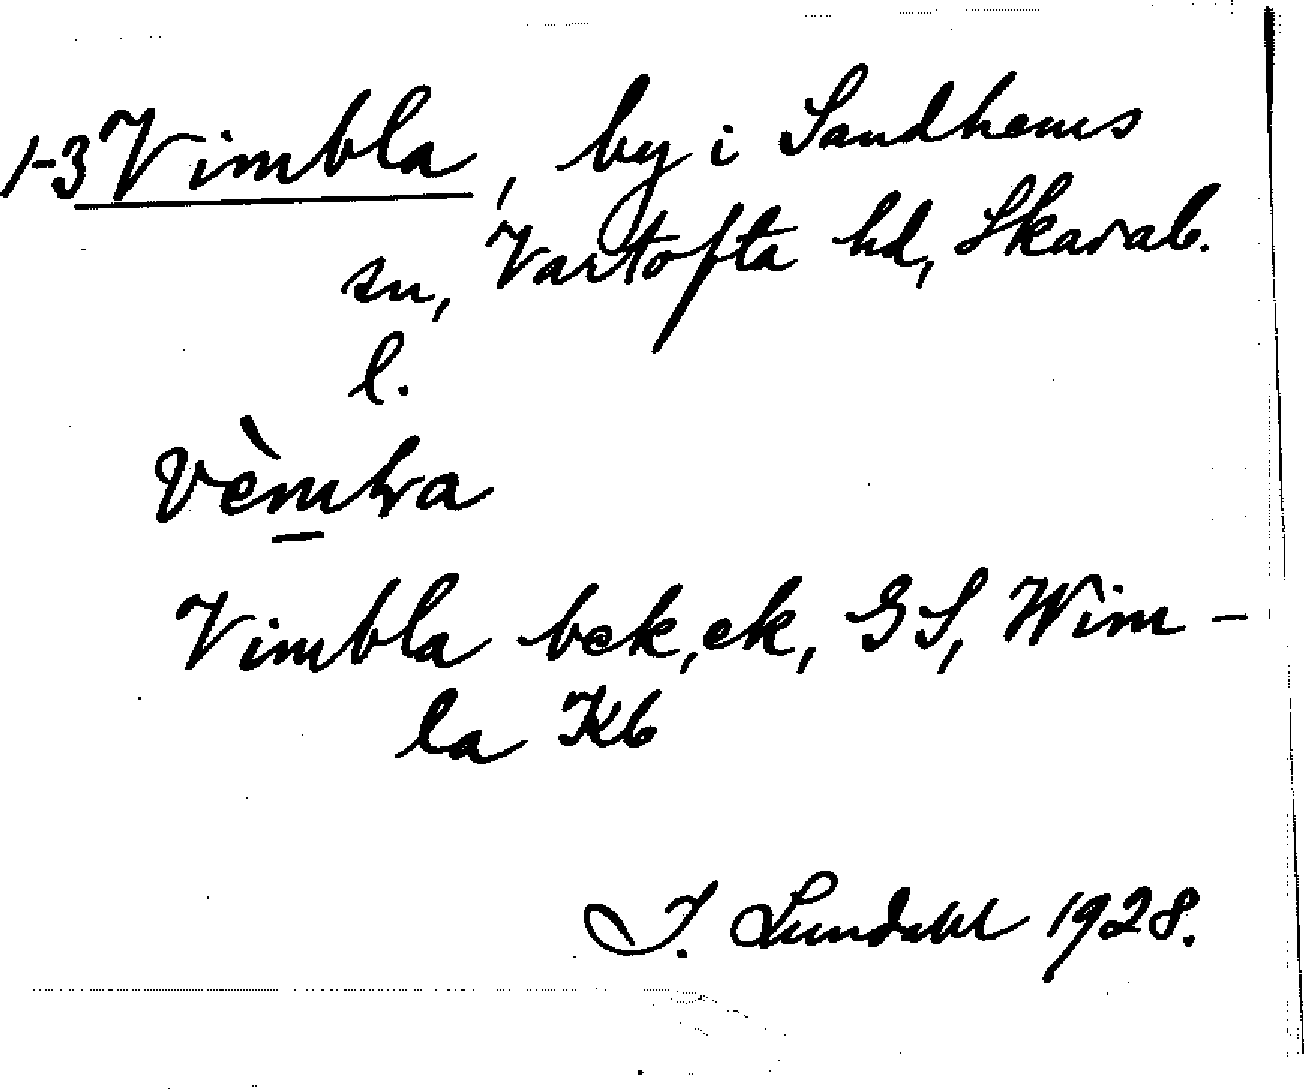 1-3 Vimbla, by i Sandhems
sn, Vartofta hd, Skarab.
l.
Vèmbra
Vimbla bek, ek, GS, Wim-
la Kb
I. Lundahl 1928.